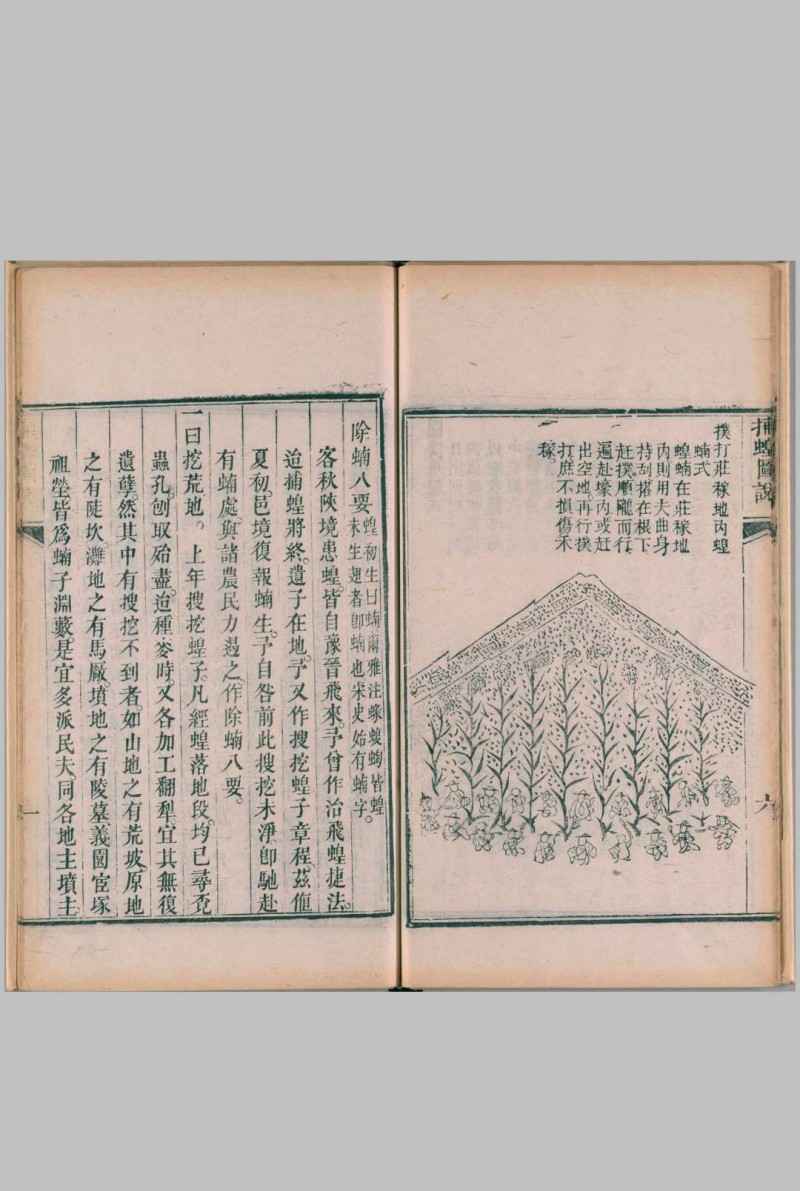 捕蝗圖說
撲打莊稼地内蝗
蝻式
蝗蝻在莊稼地
内則用夫曲身
持刮搭在根下
赶撲順隴而行
逼赴壕内或赶
出空地再行撲
打庶不損傷禾
稼。
六
除蝻八要
蝗初生曰蝻爾雅注蝝蝮蜪皆蝗
未生翅者卽蝻也宋史始有蝻字。
客秋陜境患蝗。皆自豫晉飛來。予曾作治飛蝗捷法。
迨捕蝗將終。遺子在地。予又作搜挖蝗子章程。茲値
夏初。邑境復報蝻生。予自咎前此搜挖未淨。卽馳赴
有蝻處。與諸農民力遏之。作除蝻八要。
一曰挖荒地。上年搜挖蝗子。凡經蝗落地段。均已尋覓
蟲孔。刨取殆盡。迨種麥時。又各加工翻犁。宜其無復
遺孽。然其中有搜挖不到者。如山地之有荒坡。原地
之有陡坎。灘地之有馬厰墳地之有陵墓義園宦塚
祖塋。皆爲蝻子淵藪。是宜多派民夫。同各地主墳主
一